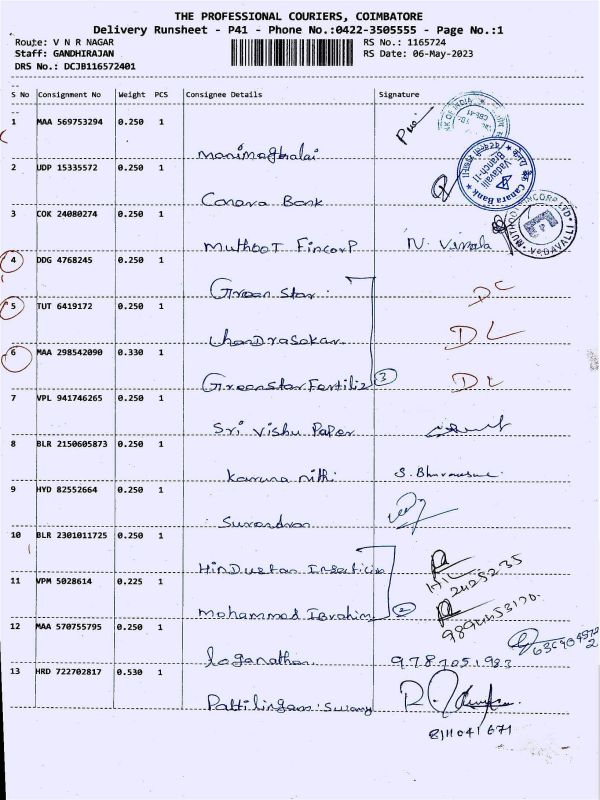 THE PROFESSIONAL COURIERS, COIMBATORE
Delivery Runsheet - P41 - Phone No.:0422-3505555 - Page No.:1
Route: V N R NAGAR RS No.: 1165724
Staff: GANDHIRAJAN RS Date: 06-May-2023
DRS No.: DCJB116572401
S No Consignment No Weight PCS Consignee Details Signature
1 MAA 569753294 0.250 1
Manimaghalai
2 UDP 15335572 0.250 1
Canara Bank
3 COK 24080274 0.250 1
Muthoot Fincorp N. Vimala
4 DDG 4768245 0.250 1
Green Star DC
5 TUT 6419172 0.250 1
Chandrasekar DL
6 MAA 298542090 0.330 1
Greenstar Fertiliz 3 DL
7 VPL 941746265 0.250 1
Sri Vishu Paper
8 BLR 2150605873 0.250 1
Karuna nithi
9 HYD 82552664 0.250 1
Surendran
10 BLR 2301011725 0.250 1
Hindustan Insecticia
HIL
2425235
11 VPM 5028614 0.225 1
Mohammed Ibrahim 2
12 MAA 570755795 0.250 1
Loganathan 9787051983
13 HRD 722702817 0.530 1
Pattilingam
8111041671
Canara Bank
Vadavalli
Branch-II